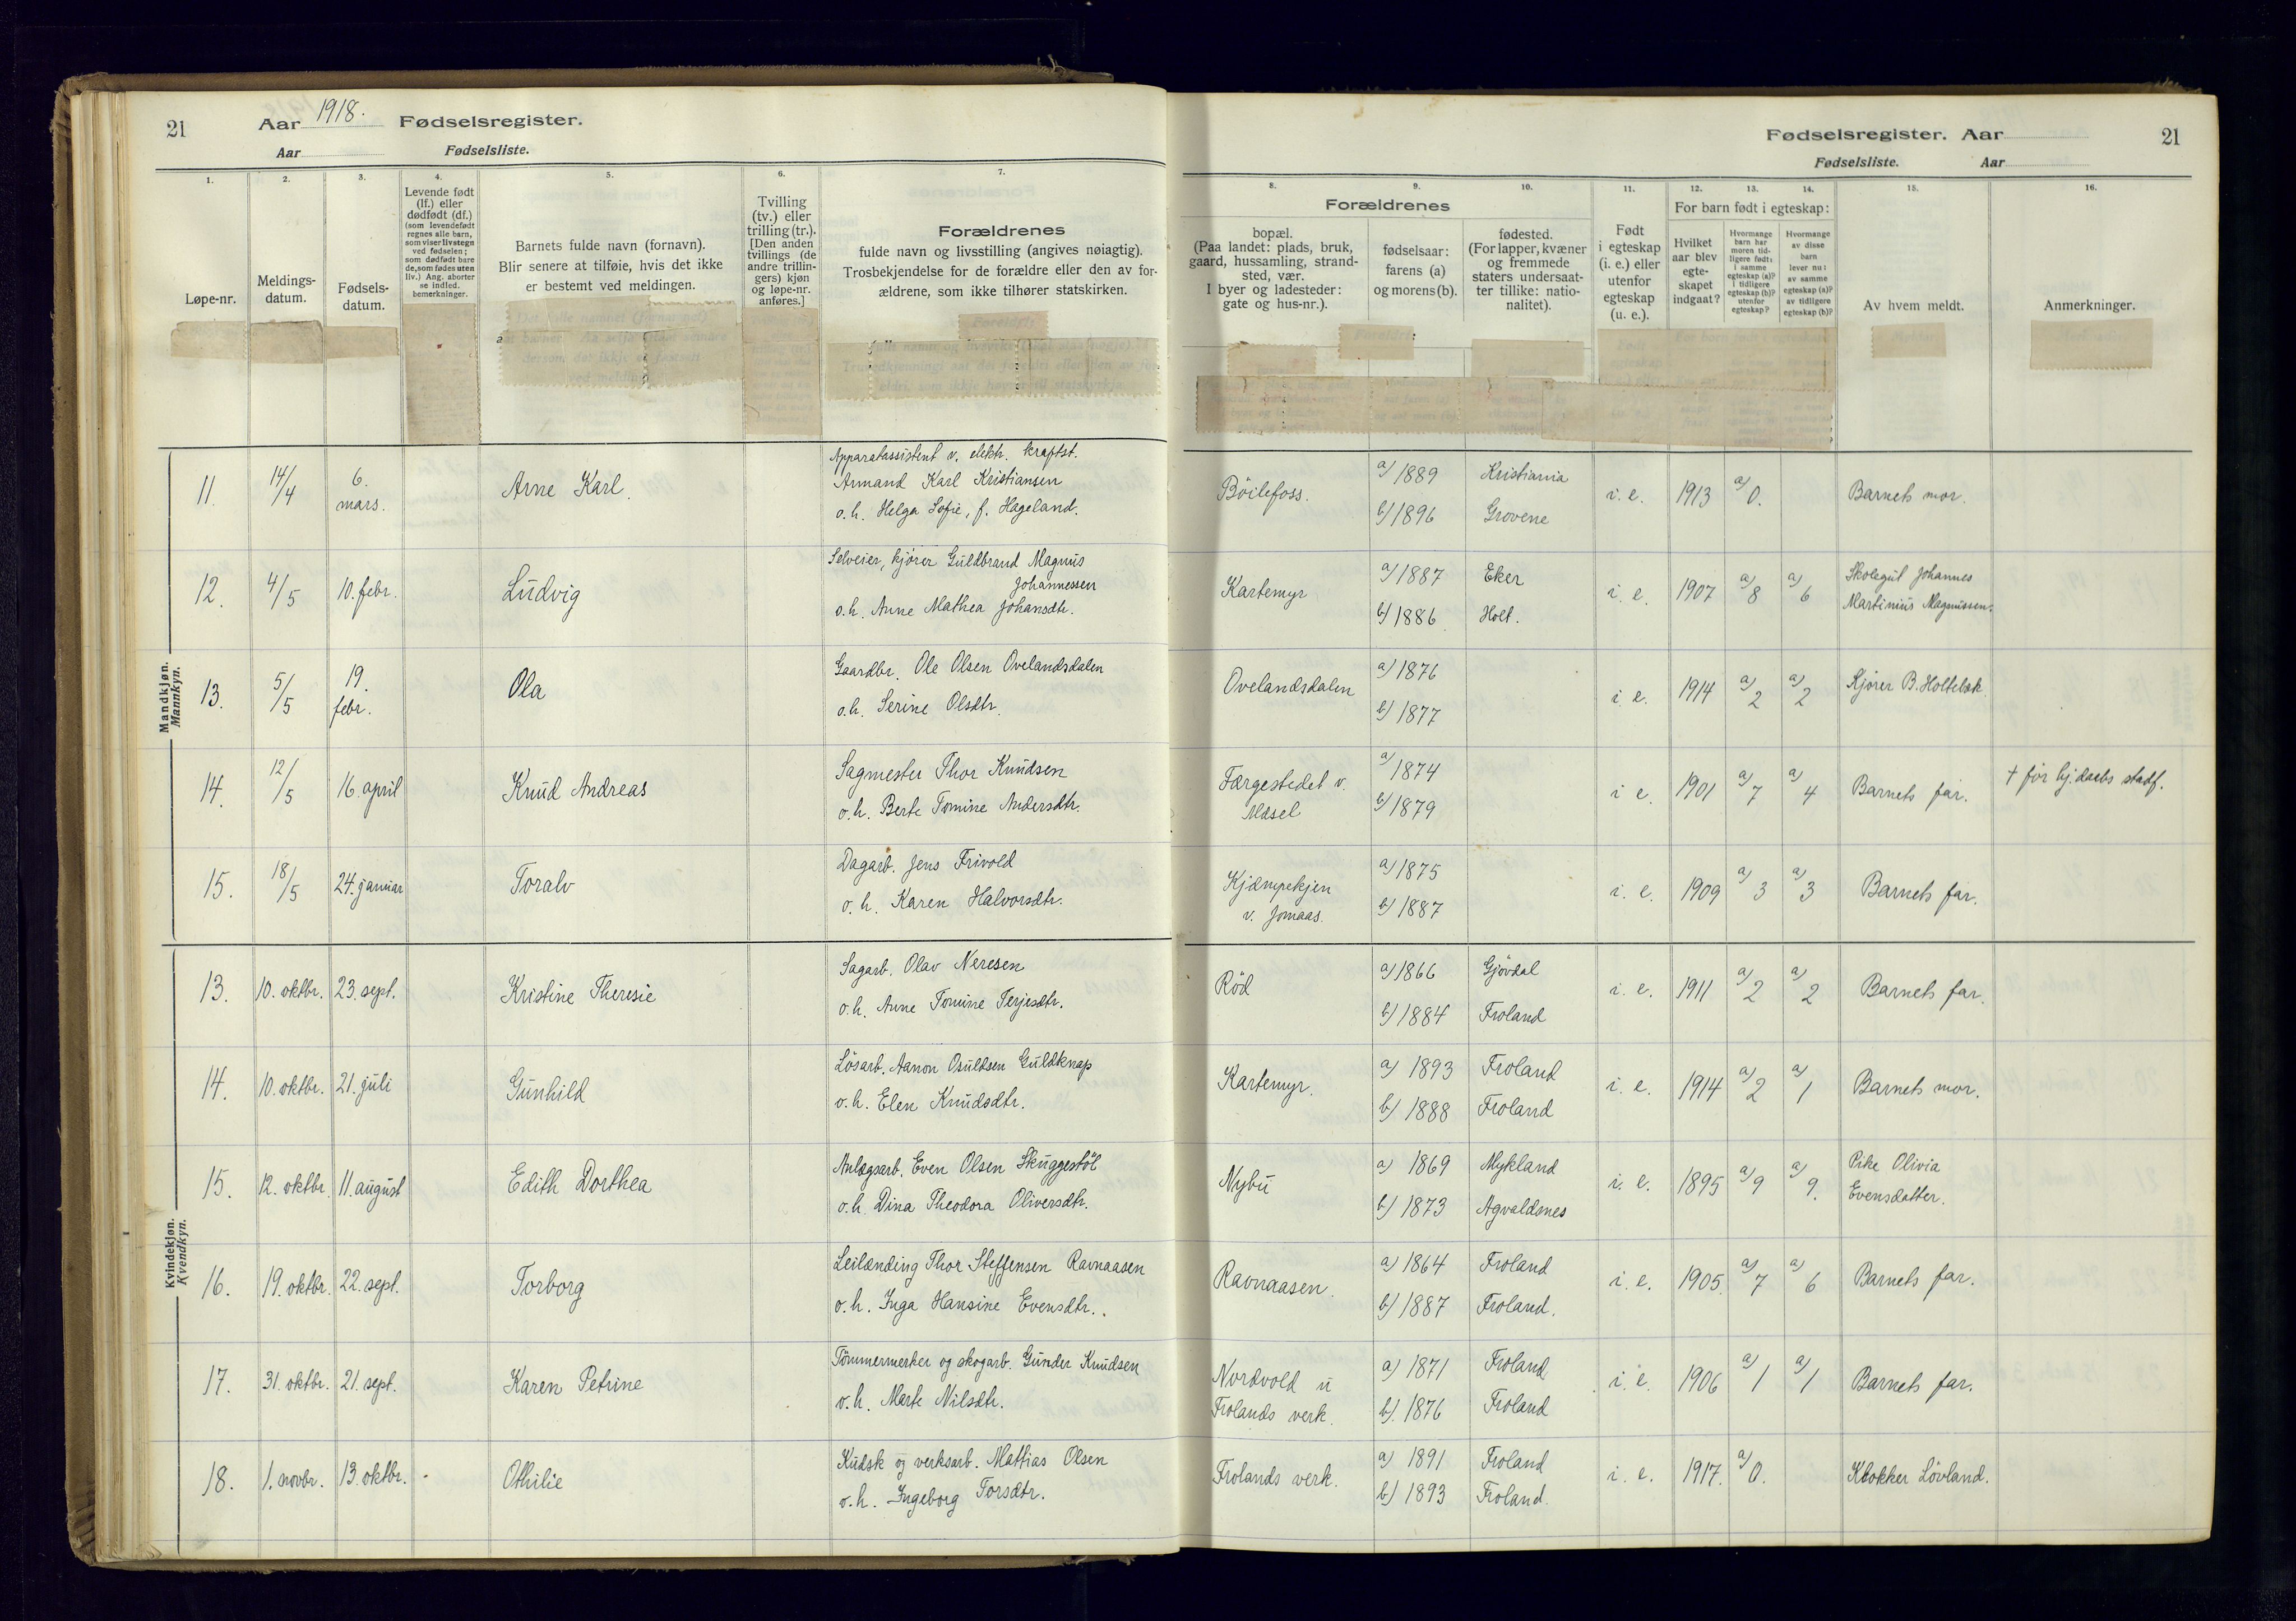 21 Aar 1918. Fødselsregister.
Aar Fødselsliste.
Fødselsregister. Aar 21
Fødselsliste. Aar
1. 2. 3. 4. 5. 6. 7.
8. 9. 10. 11. 12. 13. 14. 15. 16.
Løpe-nr.
Meldings-
datum.
Fødsels-
datum.
Levende født
(lf.) eller
dødfødt (df.)
(som levendefødt
regnes alle barn,
som viser livstegn
ved fødselen;
som dødfødt bare
de, som fødes uten
liv.) Ang. aborter
se indled.
bemerkninger.
Barnets fulde navn (fornavn).
Blir senere at tilføie, hvis det ikke
er bestemt ved meldingen.
Tvilling
(tv.) eller
trilling (tr.).
[Den anden
tvillings (de
andre trillin-
gers) kjøn
og løpe-nr.
anføres.]
Forældrenes
fulde navn og livsstilling (angives nøiagtig).
Trosbekjendelse for de forældre eller den av for-
ældrene, som ikke tilhører statskirken.
Forældrenes
bopæl.
(Paa landet: plads, bruk,
gaard, hussamling, strand-
sted, vær.
I byer og ladesteder:
gate og hus-nr.).
fødselsaar:
farens (a)
og morens (b).
fødested.
(For lapper, kvæner
og fremmede
staters undersaat-
ter tillike: natio-
nalitet).
Født
i egteskap
(i. e.) eller
utenfor
egteskap
(u. e.).
For barn født i egteskap:
Hvilket
aar blev
egte-
skapet
indgaat?
Hvormange
barn har
moren tid-
ligere født:
i samme
egteskap (a)?
i tidligere
egteskap (b)?
utenfor
egteskap?
Hvormange
av disse
barn
lever nu:
av samme
egteskap (a)?
av tidligere
egteskap (b)?
Av hvem meldt.
Anmerkninger.
Mandkjøn.
Mannkyn.
11. 14/4 6. mars. Arne Karl.
Apparatassistent v. elektr. kraftst.
Armand Karl Kristiansen
o.h. Helga Sofie, f. Hageland.
Böilefoss. a) 1889 Kristiania i. e. 1913 a) 0. Barnets mor.
b) 1896 Grovene
12. 4/5 10. febr. Ludvig
Selveier, kjører Guldbrand Magnus
Johannessen
o.h. Anne Mathea Johansdtr.
Kartemyr a) 1887 Eker i. e. 1907 a) 8 a) 6 Skolegut Johannes
Martinius Magnussen.
b) 1886 Holt.
13. 5/5 19. febr. Ola
Gaardbr. Ole Olsen Ovelandsdalen
o.h. Serine Olsdtr.
Ovelandsdalen a) 1876 i. e. 1914 a) 2 a) 2 Kjører B. Holtebæk.
b) 1877
14. 12/5 16. april Knud Andreas
Sagmester Thor Knudsen
o.h. Berte Tomine Andersdtr.
Færgestedet v.
Mæsel
a) 1874 i. e. 1901 a) 7 a) 4 Barnets far. † før hj.daabs stadf.
b) 1879
15. 18/5 24. januar Toralv
Dagarb. Jens Frivold
o.h. Karen Halvorsdtr.
Kjæmpekjen
v. Jomaas.
a) 1875 i. e. 1909 a) 3 a) 3 Barnets far.
b) 1887
Kvindekjøn.
Kvendkyn.
13. 10. oktbr. 23. sept. Kristine Theresie
Sagarb. Olav Neresen
o.h. Anne Tomine Terjesdtr.
Röd a) 1866 Gjövdal i. e. 1911 a) 2 a) 2 Barnets far.
b) 1884 Froland
14. 10. oktbr. 21. juli Gunhild
Lösarb. Aanon Osuldsen Guldknap
o.h. Elen Knudsdtr.
Kartemyr. a) 1893 Froland i. e. 1914 a) 2 a) 1 Barnets mor.
b) 1888 Froland
15. 12. oktbr. 11. august Edith Dorthea
Anlægsarb. Even Olsen Skuggestöl
o.h. Dina Theodora Oliversdtr.
Nybu a) 1869 Mykland i. e. 1895 a) 9 a) 9. Pike Olivia
Evensdatter.
b) 1873 Agvaldsnes
16. 19. oktbr. 22. sept. Torborg
Leilænding Thor Steffensen Ravnaasen
o.h. Inga Hansine Evensdtr..
Ravnaasen. a) 1864 Froland i. e. 1905. a) 7 a) 6 Barnets far.
b) 1887 Froland.
17. 31. oktbr. 21. sept. Karen Petrine
Tömmermerker og skogarb. Gunder Knudsen
o.h. Marte Nilsdtr.
Nordvold u
Frolands verk.
a) 1871 Froland i. e. 1906 a) 1 a) 1 Barnets far.
b) 1876 Froland
18. 1. novbr. 13. oktbr. Othilie
Kudsk og verksarb. Mathias Olsen
o.h. Ingeborg Torsdtr.
Frolands verk. a) 1891 Froland i. e. 1917. a) 0. Klokker Lövland.
b) 1893 Froland.